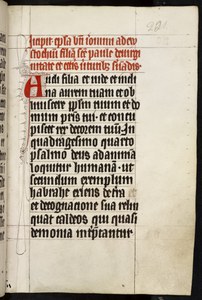 Incipit epla bti Ieronimi ad eu
stochiū filiā scē paule de virgi
nitate et
Audi filia et uide et incli
na aurem tuam et ob
liuiscere ipsm tuum et do
mum pris tui et concu
piscet rex decorem tuū In
quadragesimo quarto
psalmo deus ad animā
loquitur humanā ut
secundum exemplum
habrahe exiens de tra
et de cognacione sua relin
quat caldeos qui quasi
demonia interptantur